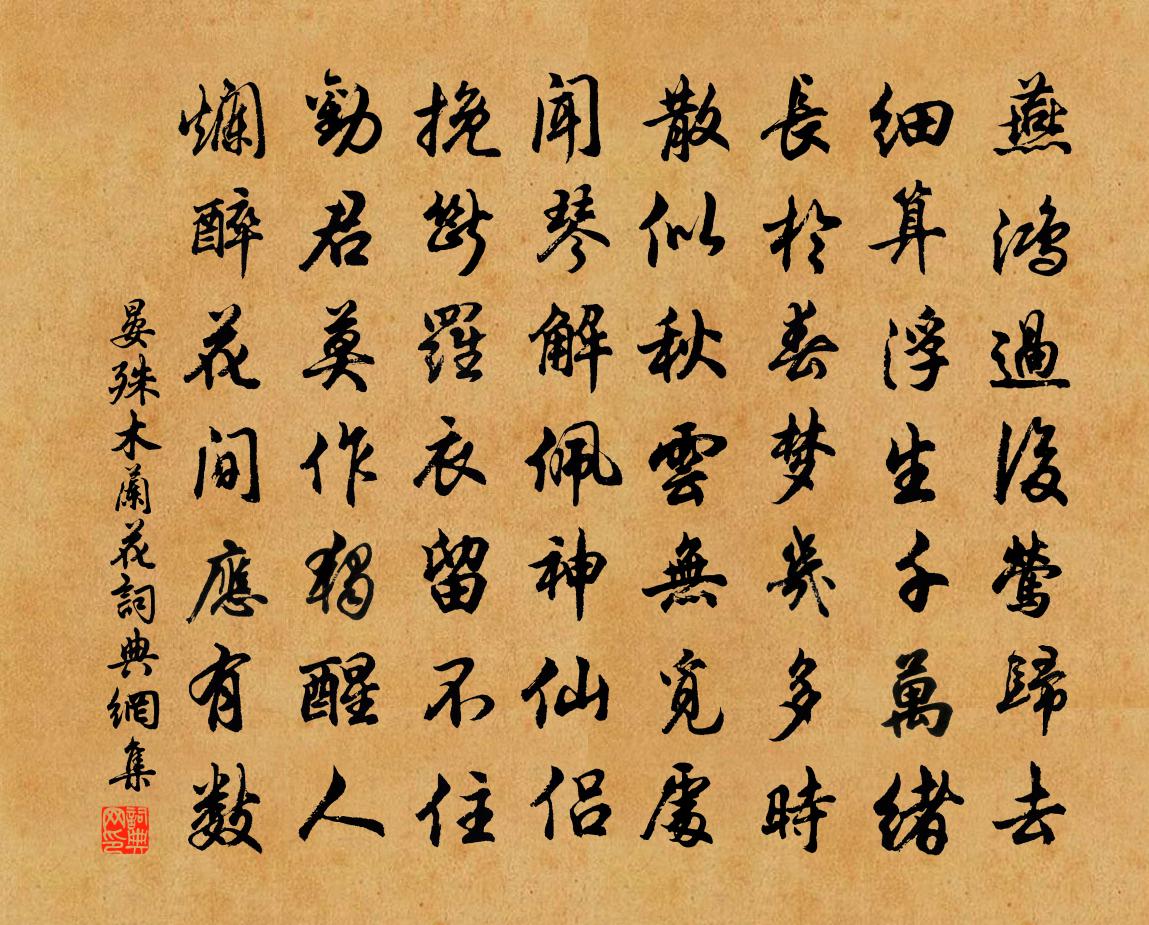 燕鴻過後鶯歸去
細算浮生千萬緒
長於春梦幾多時
散似秋雲無覓處
聞琴解佩神仙侣
挽斷羅衣留不住
勸君莫作獨醒人
爛醉花间應有數
晏殊木蘭花詞典網集
詞典网印